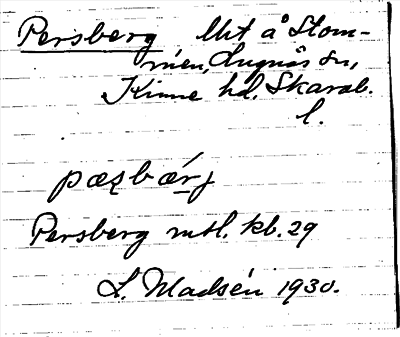 Persberg Uht å Stom-
men, Lugnås sn,
Kinne hd. Skarab.
l.
pæʂbærj
Persberg mtl. kb. 29
L. Madsén 1930.